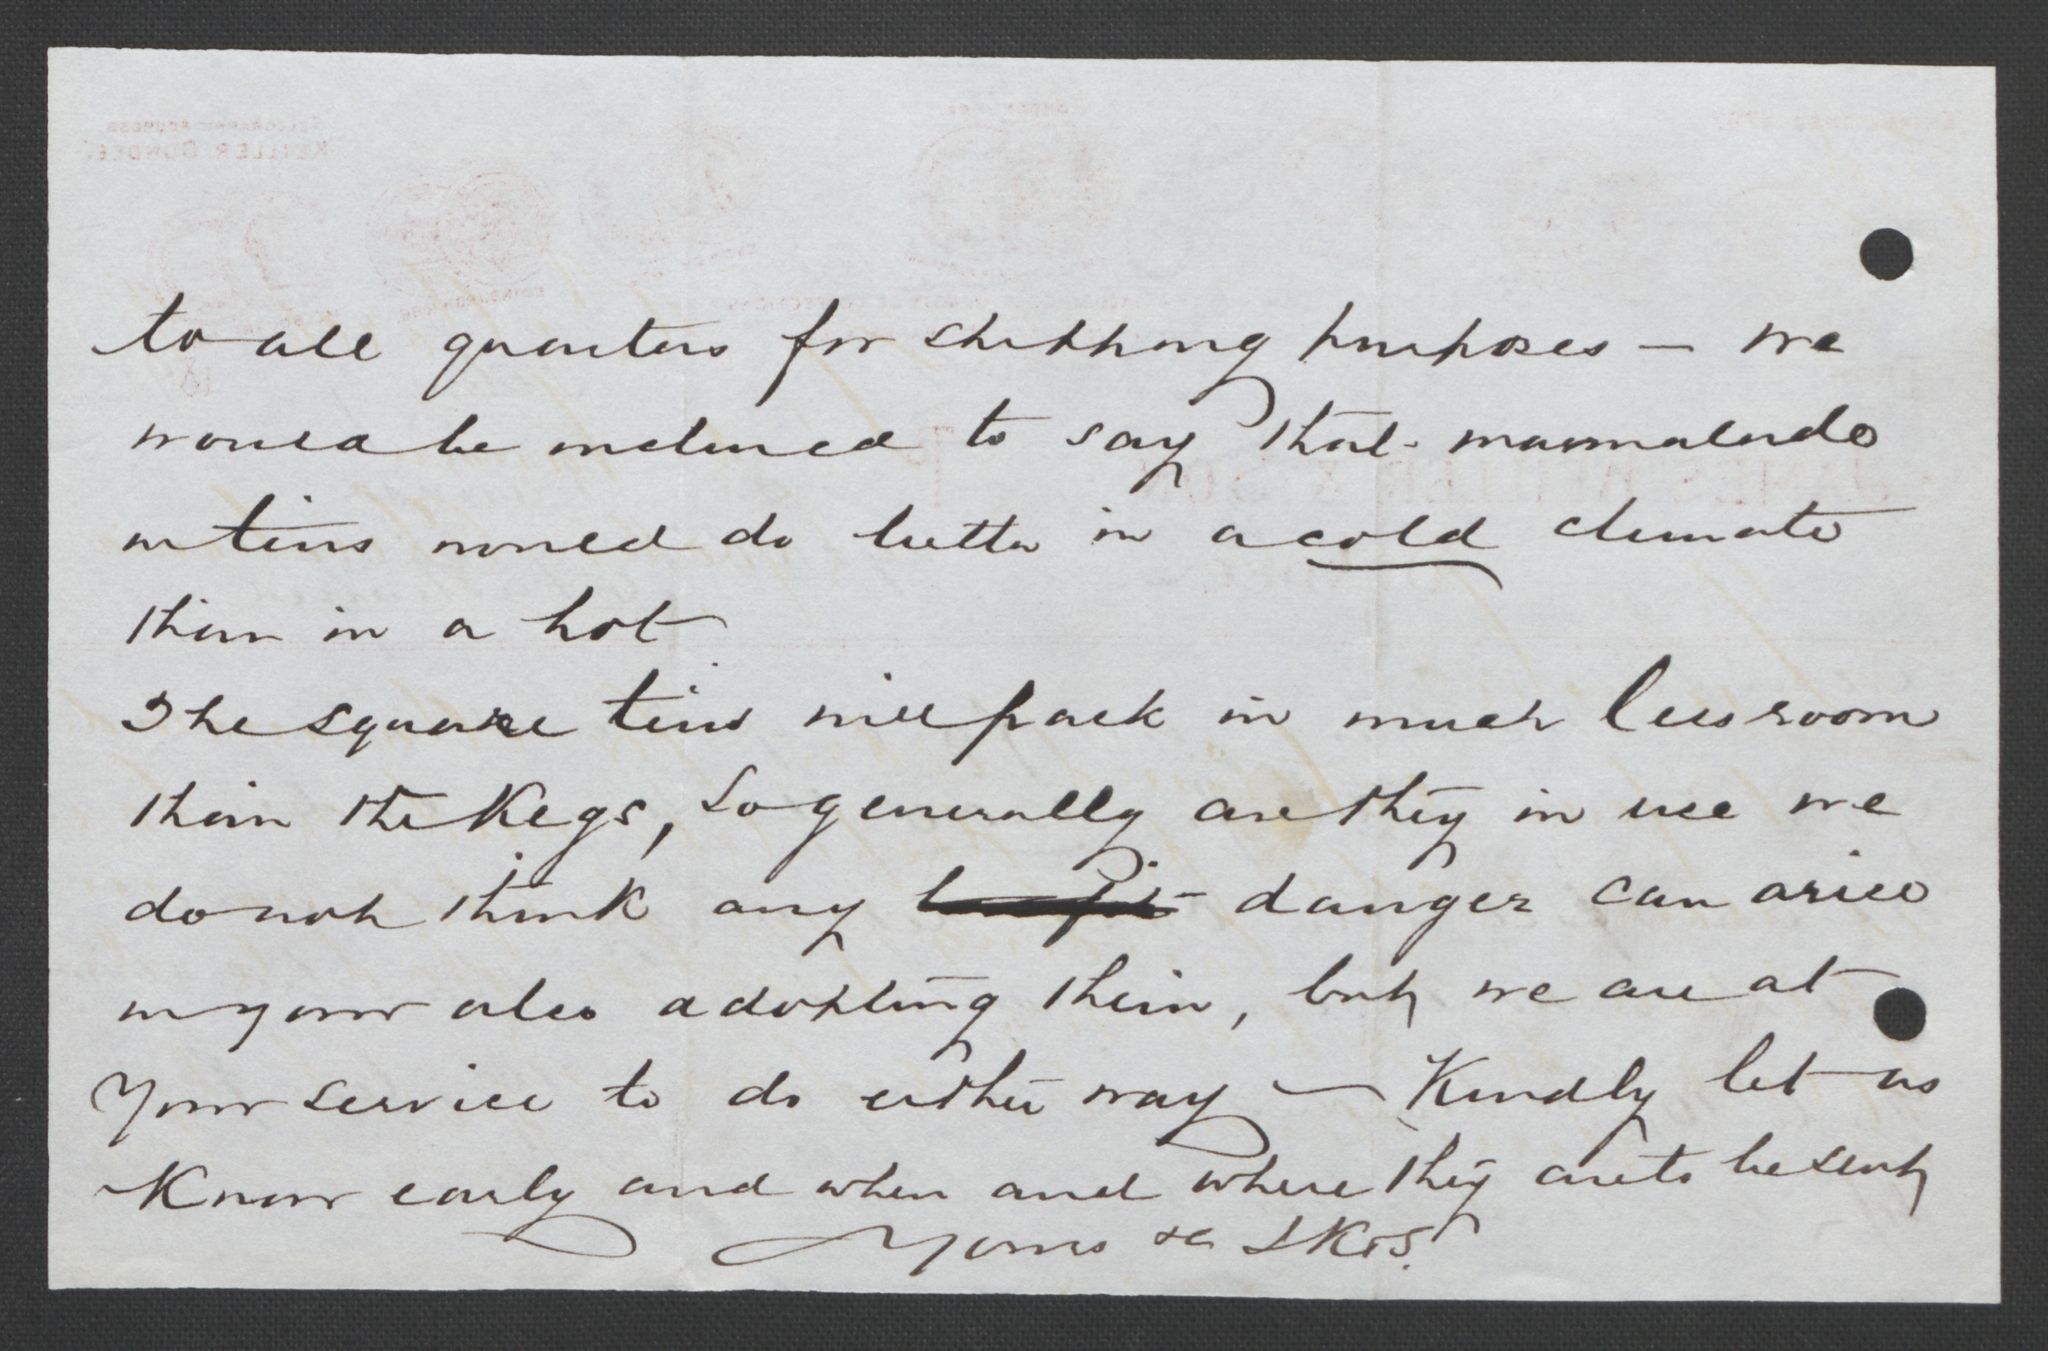 to all quarters for shipping purposes — we
would be inclined to say that marmalade
in tins would do better in a cold climate
than in a hot
The square tins will pack in much less room
than the Kegs, so generally are they in use we
do not think any danger can arise
in your also adopting them, but we are at
your service to do either way — Kindly let us
Know early and when and where they are to be sent
Yours &c JK&S.